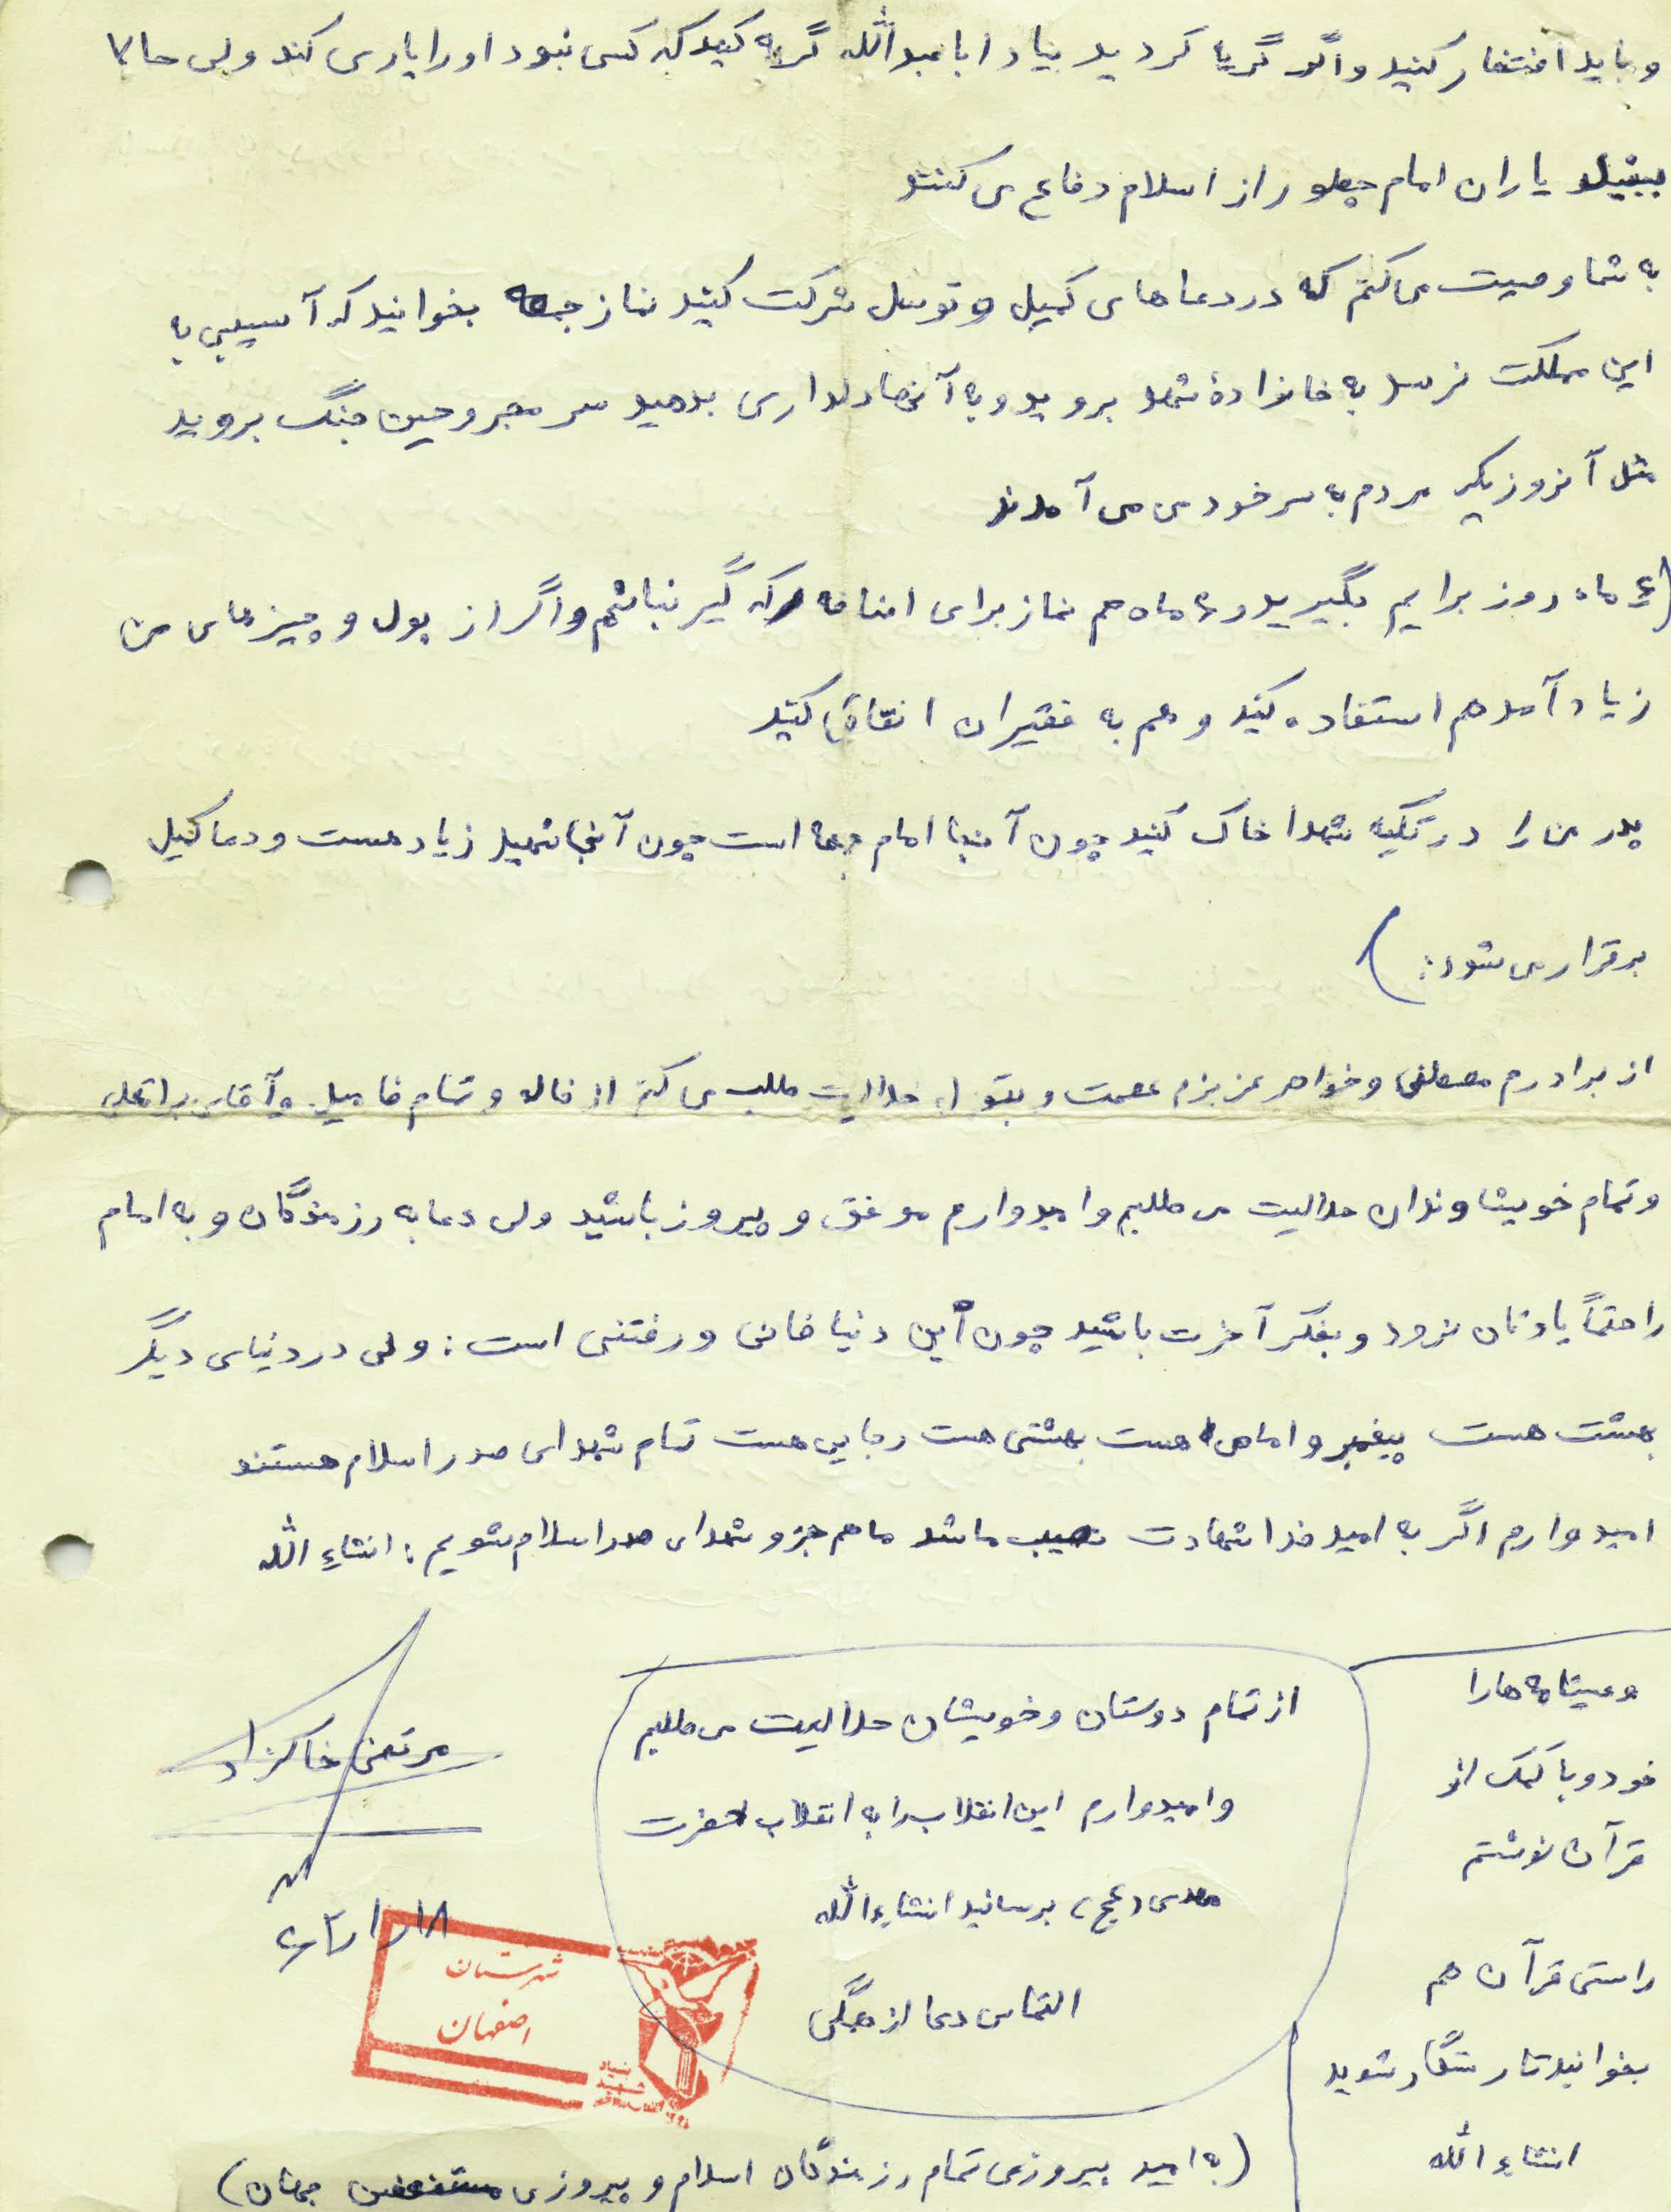 و باید افتخار کنید و اگر گریه کردید بیاد ابا عبدالله گریه کنید که کسی نبود او را یاری کند ولی حالا
ببینید یاران امام چطور از اسلام دفاع می کنند
به شما وصیت می کنم که در دعاهای کمیل و توسل شرکت کنید نماز جمعه بخوانید که آسیبی به
این مملکت نرسد به خانوادهٔ شهدا بروید و به آنها دلداری بدهید سر مجروحین جنگ بروید
مثل آنروزیکه مردم به سر خودم می آمدند
ماه روز برایم بگیرید و ماه هم نماز برای اضافه که گیر نباشم و اگر از پول و چیزهای من
زیاد آمد هم استفاده کنید و هم به فقیران انفاق کنید
پدر من را در تکیه شهدا خاک کنید چون آنجا امام است چون آنجا شهید زیاد هست و دعا کمیل
برقرار می شود:)
از برادرم مصطفی و خواهر عزیزم عصمت و بتول حلالیت طلب می کنم از خاله و تمام فامیل و آقای براتعلی
و تمام خویشاوندان حلالیت می طلبم و امیدوارم موفق و پیروز باشید ولی دعا به رزمندگان و به امام
را حتماً یادتان نرود و بفکر آخرت باشید چون این دنیا فانی و رفتنی است: ولی در دنیای دیگر
بهشت هست پیغمبر و امامی هست بهشتی هست رجایی هست تمام شهدای صدر اسلام هستند
امیدوارم اگر به امید خدا شهادت نصیب ما شد ما هم جزو شهدای صدر اسلام شویم: انشاءالله
وصیتنامه ها را
خود و با کمک از
قرآن نوشتم
راستی قرآن هم
بخوانید تا رستگار شوید
انشاءالله
از تمام دوستان و خویشان حلالیت می طلبم
و امیدوارم این انقلاب را به انقلاب حضرت
مهدی (عج) برسانید انشاءالله
التماس دعا از همگی
مرتضی خاکزاد
شهرستان
اصفهان
بنیاد
شهید
(به امید پیروزی تمام رزمندگان اسلام و پیروزی مستضعفین جهان)